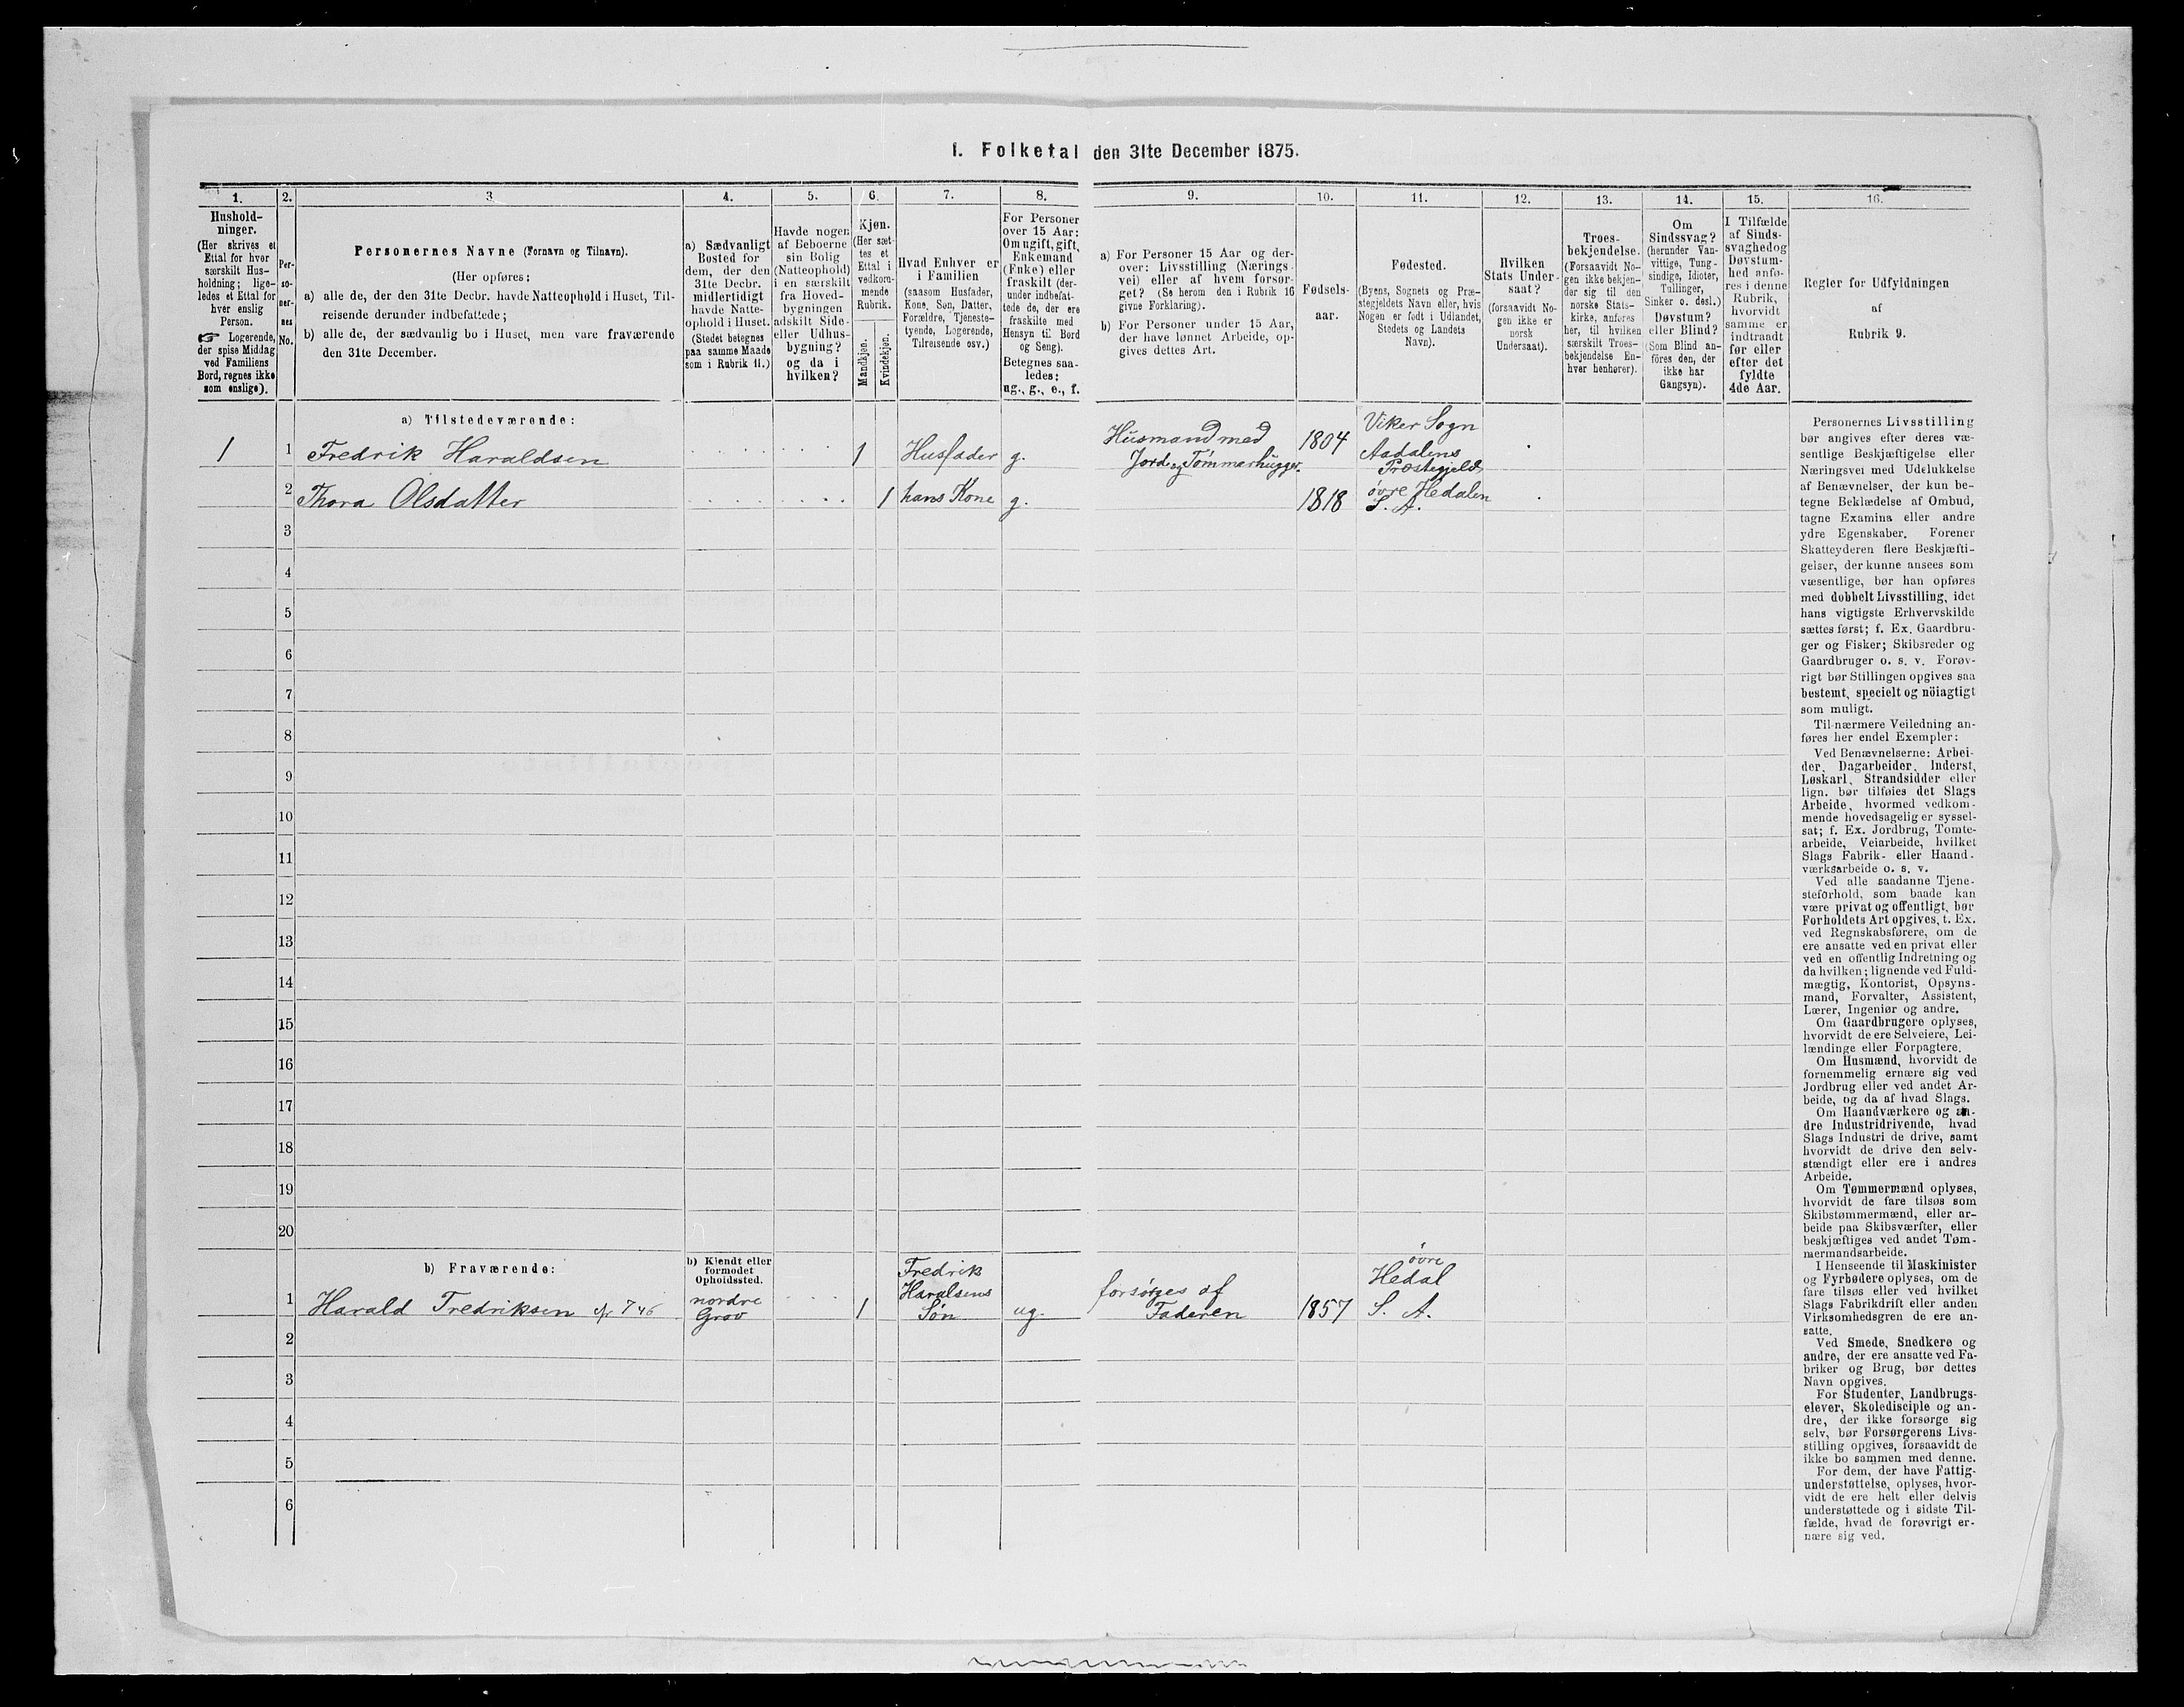 I. Folketal den 31te December 1875.
1.
Hushold-
ninger.
(Her skrives et
Ettal for hver
særskilt Hus-
holdning; lige-
ledes et Ettal for
hver enslig
Person.
☞ Logerende,
der spise Middag
ved Familiens
Bord, regnes ikke
som enslige).
2.
Per-
so-
ner-
nes
No.
3.
Personernes Navne (Fornavn og Tilnavn).
(Her opføres:
a) alle de, der den 31te Decbr. havde Natteophold i Huset, Til-
reisende derunder indbefattede;
b) alle de, der sædvanlig bo i Huset, men vare fraværende
den 31te December.
4.
a) Sædvanligt
Bosted for
dem, der den
31te Decbr.
midlertidigt
havde Natte-
ophold i Huset.
(Stedet betegnes
paa samme Maade
som i Rubrik 11.)
5.
Havde nogen
af Beboerne
sin Bolig
(Natteophold)
i en særskilt
fra Hoved-
bygningen
adskilt Side-
eller Udhus-
bygning?
og da i
hvilken?
6.
Kjøn.
(Her sæt-
tes et
Ettal i
vedkom-
mende
Rubrik.
Mandkjøn.
Kvindekjøn.
7.
Hvad Enhver er
i Familien
(saasom Husfader,
Kone, Søn, Datter,
Forældre, Tjeneste-
tyende, Logerende,
Tilreisende osv.)
8.
For Personer
over 15 Aar:
Om ugift, gift,
Enkemand
(Enke) eller
fraskilt (der-
under indbefat-
tede de, der ere
fraskilte med
Hensyn til Bord
og Seng).
Betegnes saa-
ledes:
ug., g., e., f.
9.
a) For Personer 15 Aar og der-
over: Livsstilling (Nærings-
vei) eller af hvem forsør-
get? (Se herom den i Rubrik 16
givne Forklaring).
b) For Personer under 15 Aar,
der have lønnet Arbeide, op-
gives dettes Art.
10.
Fødsels-
aar.
11.
Fødested.
(Byens, Sognets og Præ-
stegjeldets Navn eller, hvis
Nogen er født i Udlandet,
Stedets og Landets
Navn).
12.
Hvilken
Stats Under-
saat?
(forsaavidt No-
gen ikke er
norsk
Undersaat).
13.
Troes-
bekjendelse.
(Forsaavidt No-
gen ikke bekjen-
der sig til den
norske Stats-
kirke, anføres
her, til hvilken
særskilt Troes-
bekjendelse En-
hver henhører).
14.
Om
Sindssvag?
(herunder Van-
vittige, Tung-
sindige, Idioter,
Tullinger,
Sinker o. desl.)
Døvstum?
eller Blind?
(Som Blind an-
føres den, der
ikke har
Gangsyn).
15.
I Tilfælde
af Sinds-
svaghed og
Døvstum-
hed anfø-
res i denne
Rubrik,
hvorvidt
samme er
indtraadt
før eller
efter det
fyldte
4de Aar.
16.
Regler for Udfyldningen
af
Rubrik 9.
a) Tilstedeværende:
1 1 Fredrik Haraldsen 1 Husfader g. Husmand med Jord og Tømmerhugger. 1804 Viker Sogn Aadalens Præstegjeld
2 Thora Olsdatter 1 hans Kone g. 1818 øvre Hedalen S. A.
3
4
5
6
7
8
9
10
11
12
13
14
15
16
17
18
19
20
b) Fraværende:
b) Kjendt eller
formodet
Opholdssted.
1 Harald Fredriksen nordre Grov 1 Fredrik Haralsens Søn ug. forsørges af Faderen 1857 øvre Hedal S. A.
2
3
4
5
6
Personernes Livsstilling
bør angives efter deres væ-
sentlige Beskjæftigelse eller
Næringsvei med Udelukkelse
af Benævnelser, der kun be-
tegne Beklædelse af Ombud,
tagne Examina eller andre
ydre Egenskaber. Forener
Skatteyderen flere Beskjæfti-
gelser, der kunne ansees som
væsentlige, bør han opføres
med dobbelt Livsstilling, idet
hans vigtigste Erhvervskilde
sættes først; f. Ex. Gaardbru-
ger og Fisker; Skibsreder og
Gaardbruger o. s. v. Forøv-
rigt bør Stillingen opgives saa
bestemt, specielt og nöiagtigt
som muligt.
Til nærmere Veiledning an-
føres her endel Exempler:
Ved Benævnelserne: Arbei-
der, Dagarbeider, Inderst,
Løskarl, Strandsidder eller
lign. bør tilføies det Slags
Arbeide, hvormed vedkom-
mende hovedsagelig er syssel-
sat; f. Ex. Jordbrug, Tomte-
arbeide, Veiarbeide, hvilket
Slags Fabrik- eller Haand-
værksarbeide o. s. v.
Ved alle saadanne Tjene-
steforhold, som baade kan
være privat og offentligt, bør
Forholdets Art opgives, t. Ex.
ved Regnskabsførere, om de
ere ansatte ved en privat eller
ved en offentlig Indretning og
da hvilken; lignende ved Fuld-
mægtig, Kontorist, Opsyns-
mand, Forvalter, Assistent,
Lærer, Ingeniør og andre.
Om Gaardbrugere oplyses,
hvorvidt de ere Selveiere, Lei-
lændinge eller Forpagtere.
Om Husmænd, hvorvidt de
fornemmelig ernære sig ved
Jordbrug eller ved andet Ar-
beide, og da af hvad Slags.
Om Haandværkere og an-
dre Industridrivende, hvad
Slags Industri de drive, samt
hvorvidt de drive den selv-
stændigt eller ere i andres
Arbeide.
Om Tømmermænd oplyses,
hvorvidt de fare tilsøs som
Skibstømmermænd, eller ar-
beide paa Skibsværfter, eller
beskjæftiges ved andet Tøm-
mermandsarbeide.
I Henseende til Maskinister
og Fyrbødere oplyses, om de
fare tilsøs eller ved hvilket
Slags Fabrikdrift eller anden
Virksomhedsgren de ere an-
satte.
Ved Smede, Snedkere og
andre, der ere ansatte ved Fa-
briker og Brug, bør dettes
Navn opgives.
For Studenter, Landbrugs-
elever, Skoledisciple og an-
dre, der ikke forsørge sig
selv, bør Forsørgerens Livs-
stilling opgives, forsaavidt de
ikke bo sammen med denne.
For dem, der have Fattig-
understøttelse, oplyses, hvor-
vidt de ere helt eller delvis
understøttede og i sidste Til-
fælde, hvad de forøvrigt er-
nære sig ved.